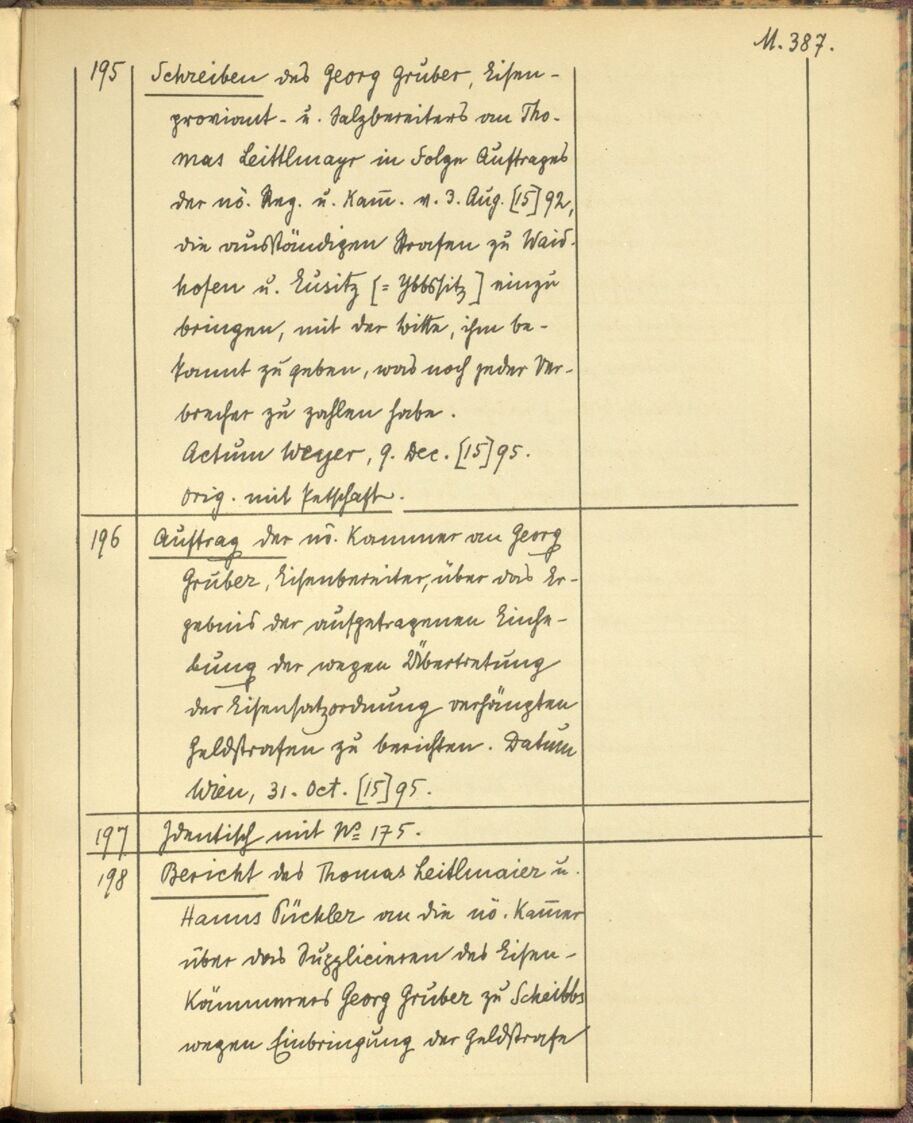 M. 387.
195 Schreiben des Georg Gruber, Eisen-
proviant- u. Salzbereiters an Tho-
mas Leittlmayr in Folge Auftrages
der nö. Reg. u. Kam̄. v. 3. Aug. [15]92,
die ausständigen Strafen zu Waid-
hofen u. Eusitz [= Ybbssitz] einzu
bringen, mit der Bitte, ihm be-
kannt zu geben, was noch jeder Ver-
brecher zu zahlen habe.
Actum Weyer, 9. Dec. [15]95.
Orig. mit Petschaft.
196 Auftrag der nö. Kammer an Georg
Gruber, Eisenbereiter, über das Er-
gebnis der aufgetragenen Einhe-
bung der wegen Übertretung
der Eisensatzordnung verhängten
Geldstrafen zu berichten. Datum
Wien, 31. Oct. [15]95.
197 Identisch mit No 175.
198 Bericht des Thomas Leitlmaier u.
Hanns Pückler an die nö. Kam̄er
über das Supplicieren des Eisen-
Kämmerers Georg Gruber zu Scheibbs
wegen Einbringung der Geldstrafe